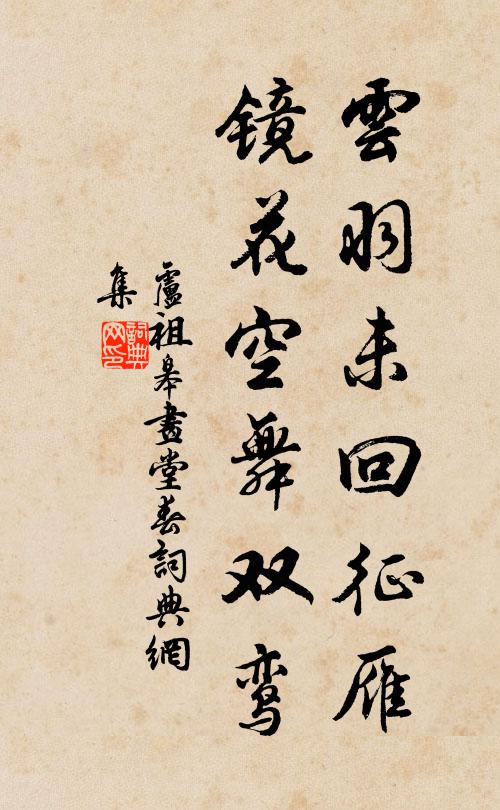 雲羽未回征雁
镜花空舞双鸾
盧祖皋畫堂春詞典網
集
詞典
网印